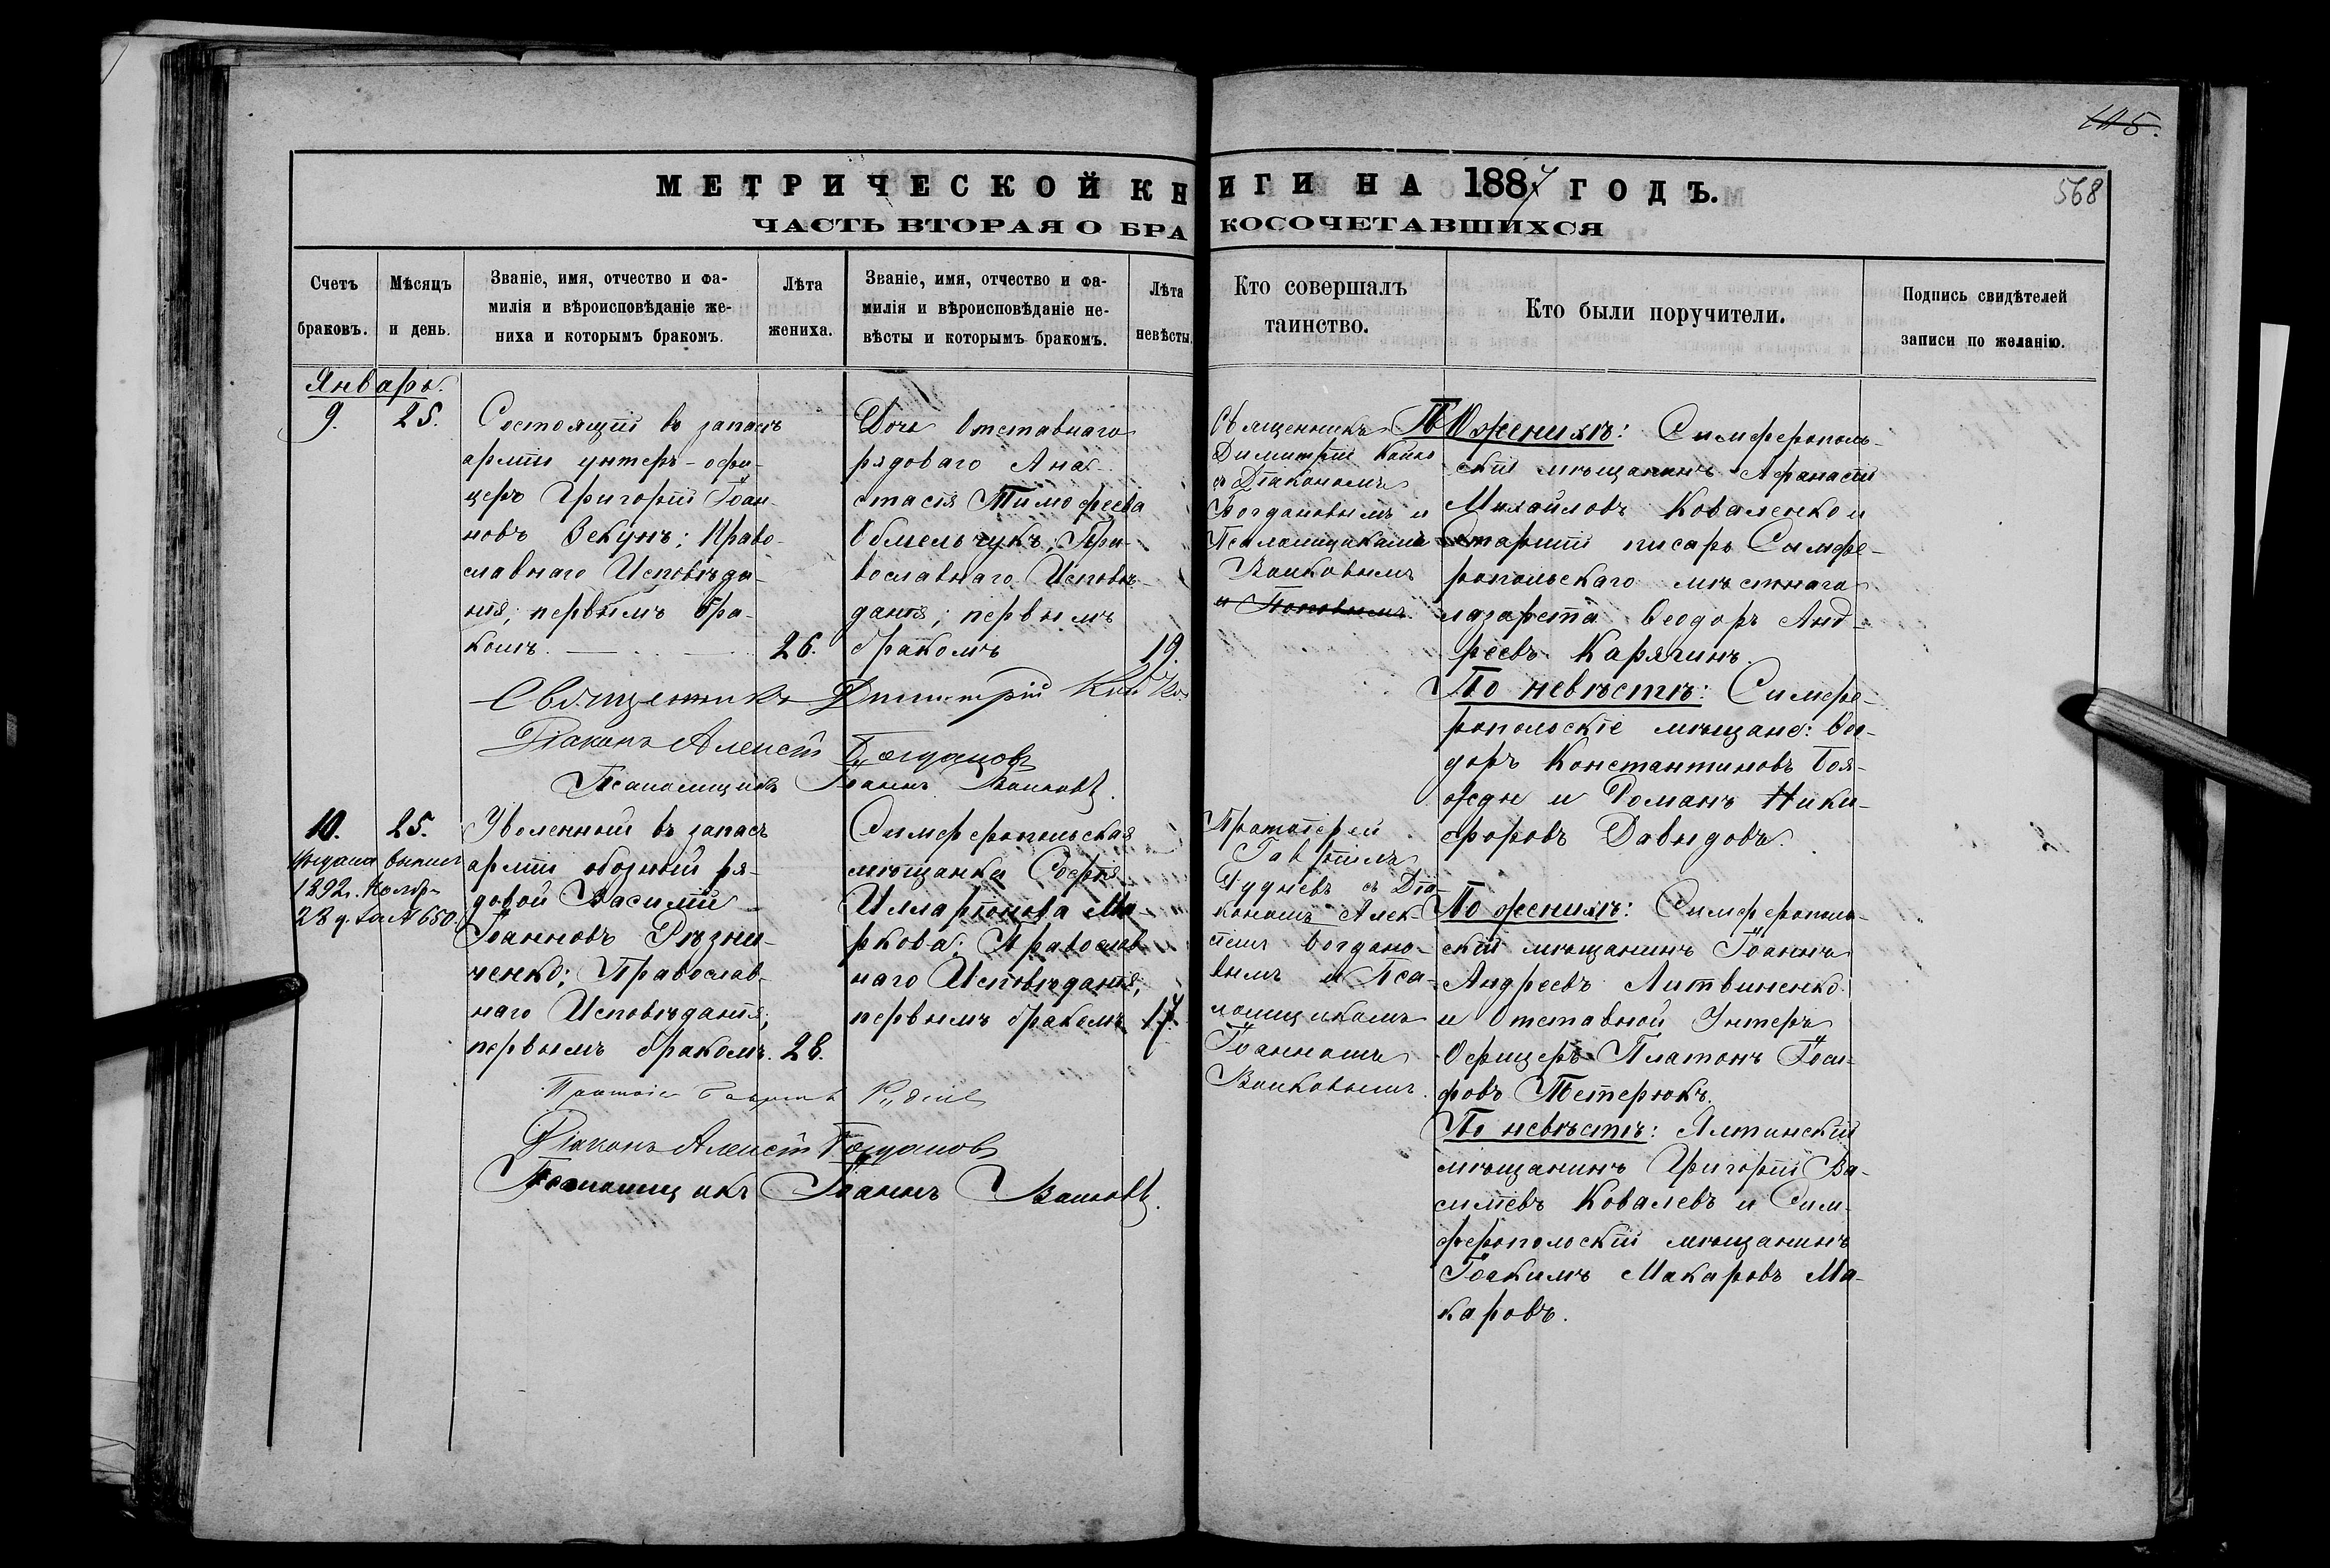 115.
568
МЕТРИЧЕСКОЙ КНИГИ НА 1887 ГОДЪ.
ЧАСТЬ ВТОРАЯ О БРАКОСОЧЕТАВШИХСЯ
Счетъ браковъ.
Мѣсяцъ и день.
Званіе, имя, отчество и фа-
милія и вѣроисповѣданіе же-
ниха и которымъ бракомъ.
Лѣта
жениха.
Званіе, имя, отчество и фа-
милія и вѣроисповѣданіе не-
вѣсты и которымъ бракомъ.
Лѣта
невѣсты.
Кто совершалъ
таинство.
Кто были поручители.
Подпись свидѣтелей
записи по желанію.
Январь.
9. 25.
Состоящій въ запасѣ
арміи унтеръ-офи-
церъ Григорій Іоан-
новъ Векунъ; Право-
славнаго Исповѣда-
нія; первымъ бра-
комъ.
26.
Дочь Отставнаго
рядоваго Ана-
стасія Тимофеева
Обмельчукъ; Пра-
вославнаго Исповѣ-
данія; первымъ
бракомъ
19.
Священникъ
Димитрій Койко
съ Діакономъ
Богдановымъ и
Псаломщиками
Вайковымъ
и Поповымъ.
По женихѣ: Симферополь-
скій мѣщанинъ Афанасій
Михайловъ Коваленко и
Старшій писарь Симфе-
ропольскаго мѣстнаго
лазарета Ѳеодоръ Анд-
реевъ Карягинъ.
По невѣстѣ: Симфе-
ропольскіе мѣщане: Ѳео-
доръ Константиновъ Боя-
джи и Романъ Ники-
форовъ Давыдовъ.
Священникъ Димитрій Койко
Діаконъ Алексій Богдановъ
Псаломщикъ Іоаннъ Вайковъ.
10. 25.
Выдана выпись
1892 г. Ноябр-
28 д. за № 650.
Уволенный въ запасъ
арміи обозный ря-
довой Василій
Іоанновъ Рѣзни-
ченко; Православ-
наго Исповѣданія;
первымъ бракомъ.
28.
Симферопольская
мѣщанка Софія
Илларіонова Ма-
ркова; Православ-
наго Исповѣданія;
первымъ бракомъ
17.
Протоіерей
Гавріилъ
Руднєвъ съ Діа-
кономъ Алек-
сіемъ Богдано-
вымъ и Пса-
ломщикомъ
Іоанномъ
Вайковымъ.
По женихѣ: Симферополь-
скій мѣщанинъ Іоаннъ
Андреевъ Литвиненко
и Отставной Унтеръ
Офицеръ Платонъ Іоси-
фовъ Тетерюкъ.
По невѣстѣ: Ялтинскій
мѣщанинъ Григорій Ва-
сильевъ Ковалевъ и Сим-
феропольскій мѣщанинъ
Іоакимъ Макаровъ Ма-
каровъ.
Діаконъ Алексій Богдановъ
Псаломщикъ Іоаннъ Вайковъ.